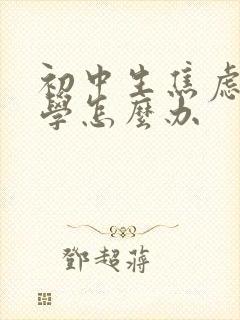 初中生焦虑
學怎麼办
鄧超蔣